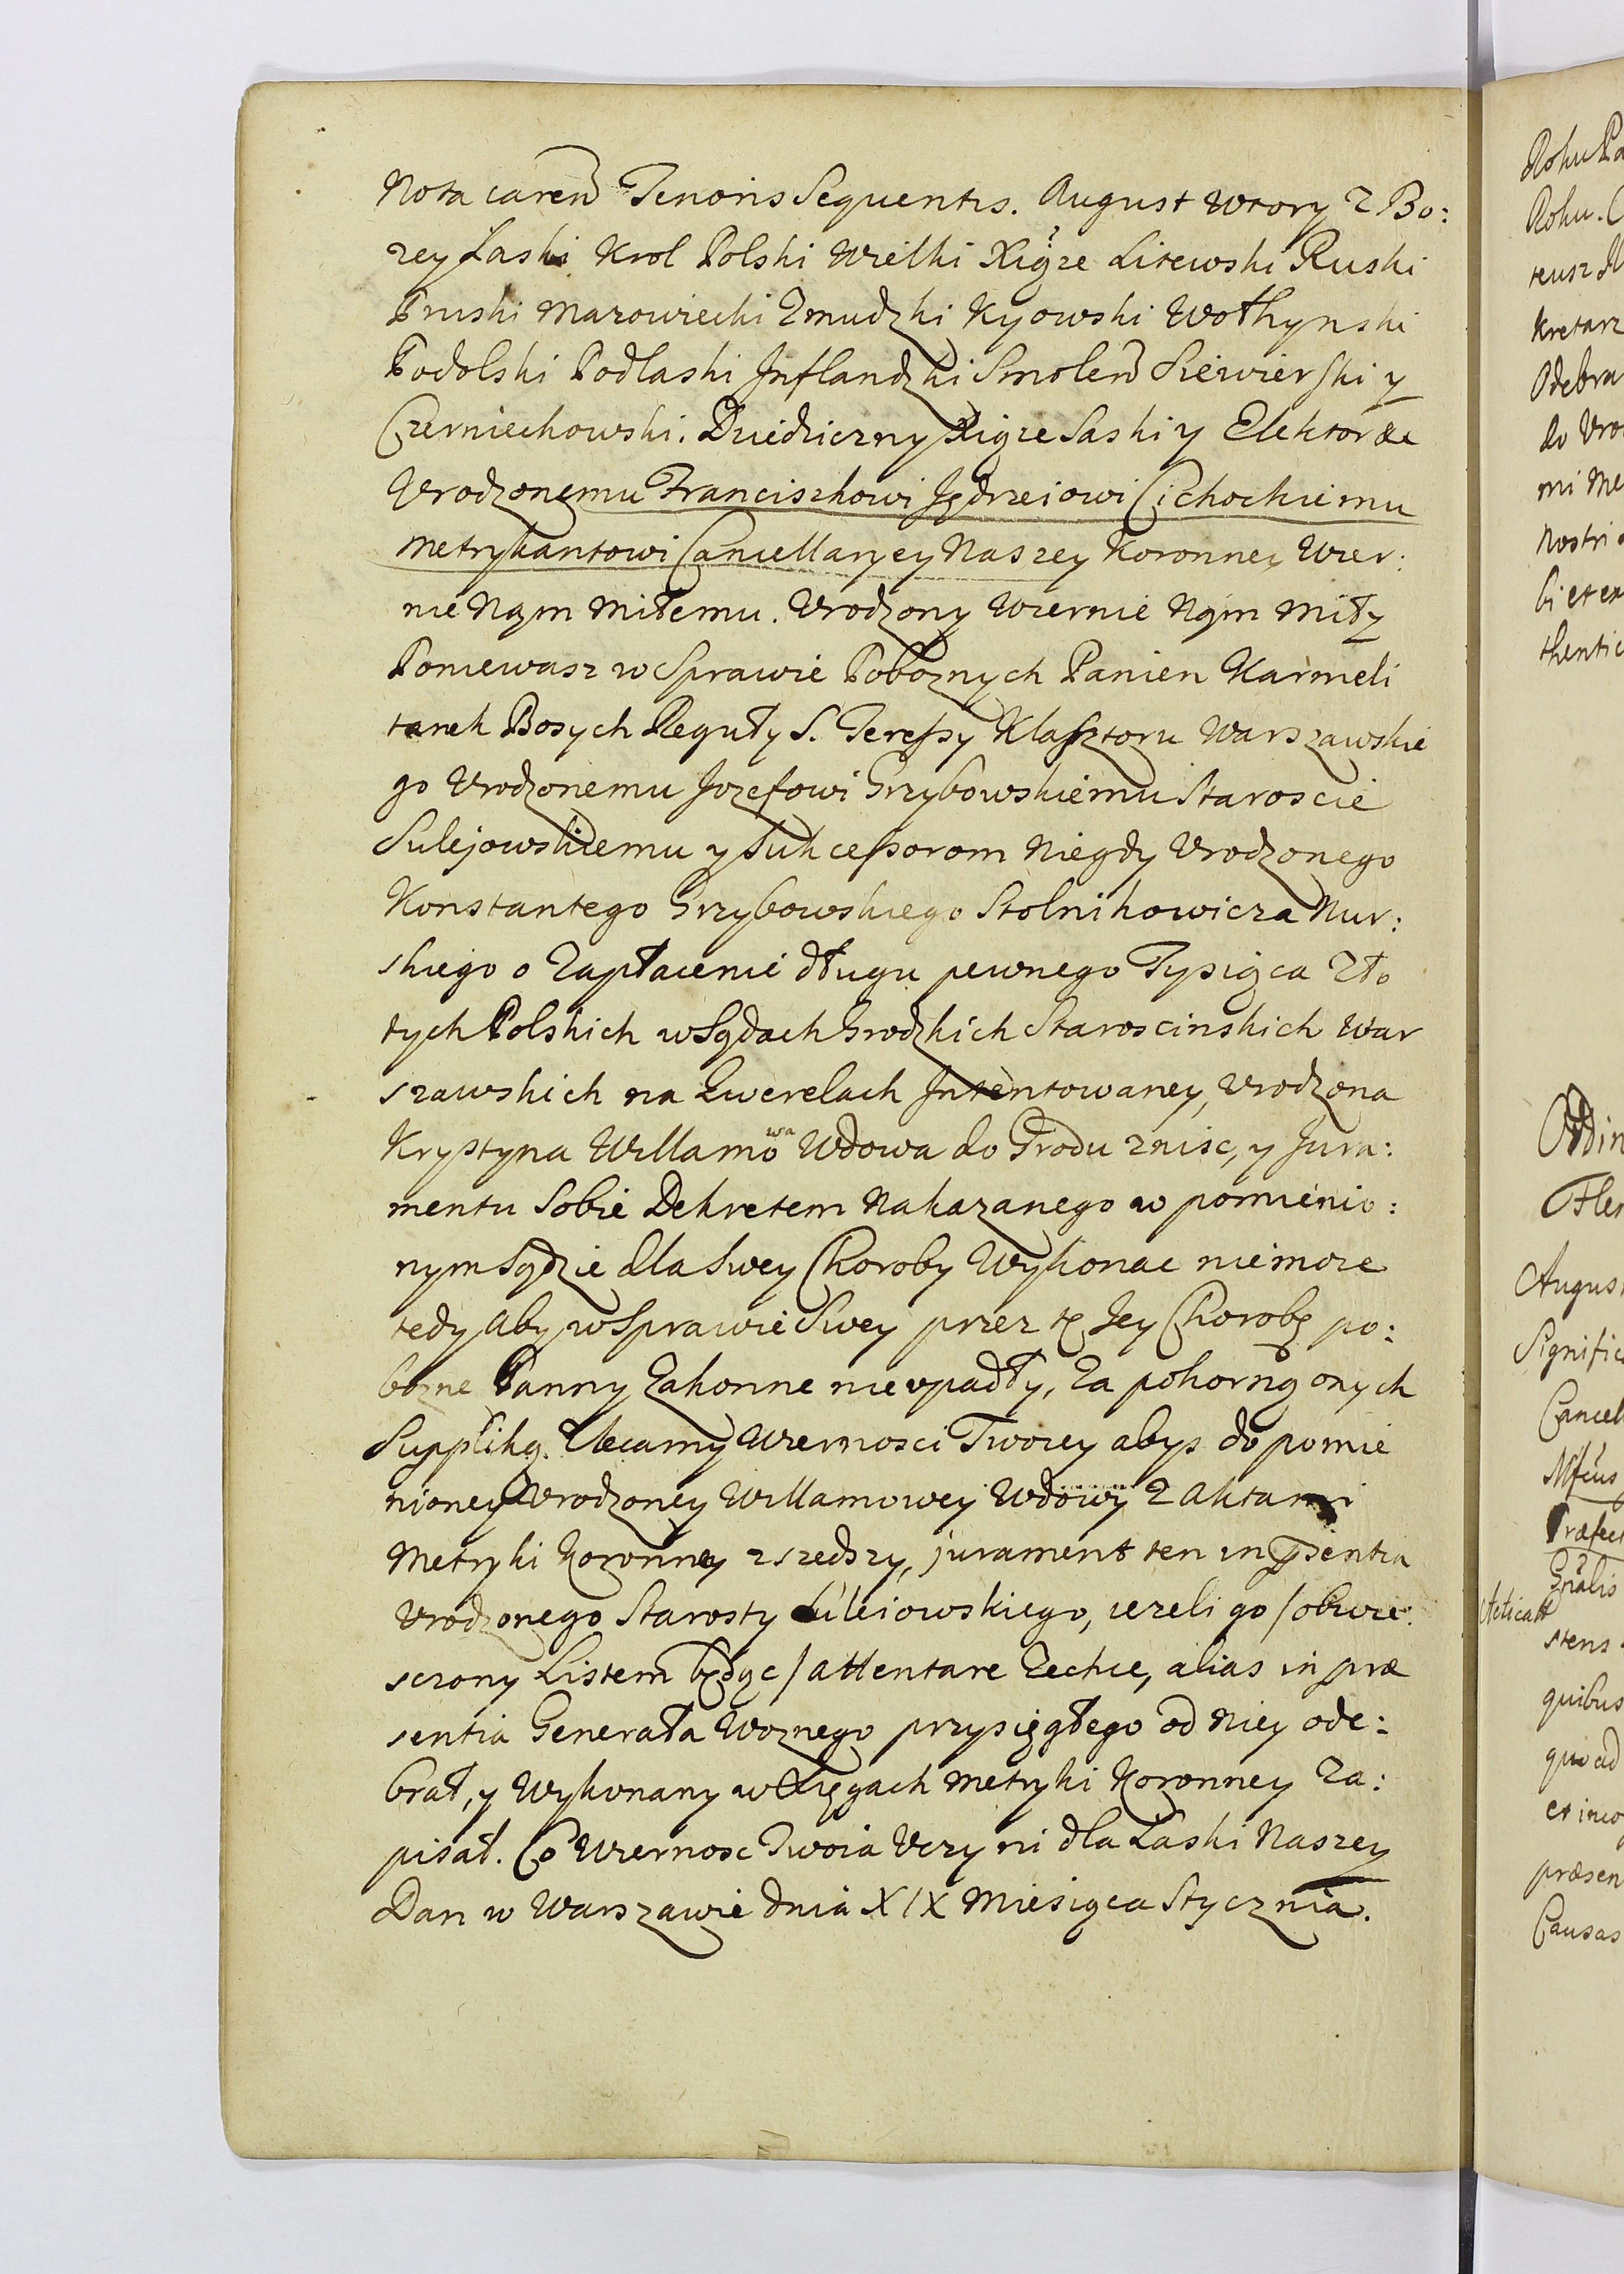 Nota caren Tenoris Sequentis. August Wtory Z Bo:
zey Łaski Krol Polski Wielki Xiąze Litewski Ruski
Pruski Mazowiecki Zmudzki Kyowski Wołhynski
Podolski Podlaski Inflandzki Smolen Siewierski y
Czerniechowski. Dziedziczny Xiąze Saski y Elektor &c
Urodzonemu Franciszkowi Jędrzeiowi Cichockiemu
Metrykantowi Cancellaryey Naszey Koronney Wier:
nie Nąm Miłemu. Urodzony Wiernie Nąm Miły
Poniewasz w Sprawie Poboznych Panien Karmeli
tanek Bosych Reguły S. Teressy Klasztoru Warszawskie
go Urodzonemu Jozefowi Grzybowskiemu Staroscie
Sulejowskiemu y Sukcessorom Niegdy Urodzonego
Konstantego Grzybowskiego Stolnikowicza Nur:
skiego o Zapłacenie długu pewnego Tysiąca Zło
tych Polskich w Sądach Grodzkich Staroscinskich War
szawskich na Kwerelach Intentowaney, Urodzona
Krystyna Willamowa Wdowa do Grodu znisc, y Jura:
mentu Sobie Dekretem Nakazanego w pomienio:
nym Sądzie dla Swey Choroby Wykonac nie moze
tedy aby w Sprawie Swey przez tę Jey Chorobę po:
bozne Panny Zakonne nie upadły, Za pokorną onych
Suppliką. Zlecamy Wiernosci Twoiey abys do pomie
nioney Urodzoney Willamowey Wdowy Z Aktami
Metryki Koronney zszedszy, jurament ten in psentia
Urodzonego Starosty Suleiowskiego, iezeli go / obwie
sczony Listem będąc / attentare Zechce, alias in præ
sentia Generała Woznego przysięgłego od Niey ode:
brał, y Wykonany w Xięgach Metryki Koronney Za:
pisał. Co Wiernosc Twoia Uczyni dla Łaski Naszey
Dan w Warszawie dnia XIX Miesiąca Stycznia.
Roku
Roku.
teusz
kretarz
Odebra
do Uro
mi Me
Nostri
bi et ex
thentic
Ordin
August
Signific
Cancel
Præfect
Gnalis
Acticatt
stens
quibus
quo ad
præsen
Causas